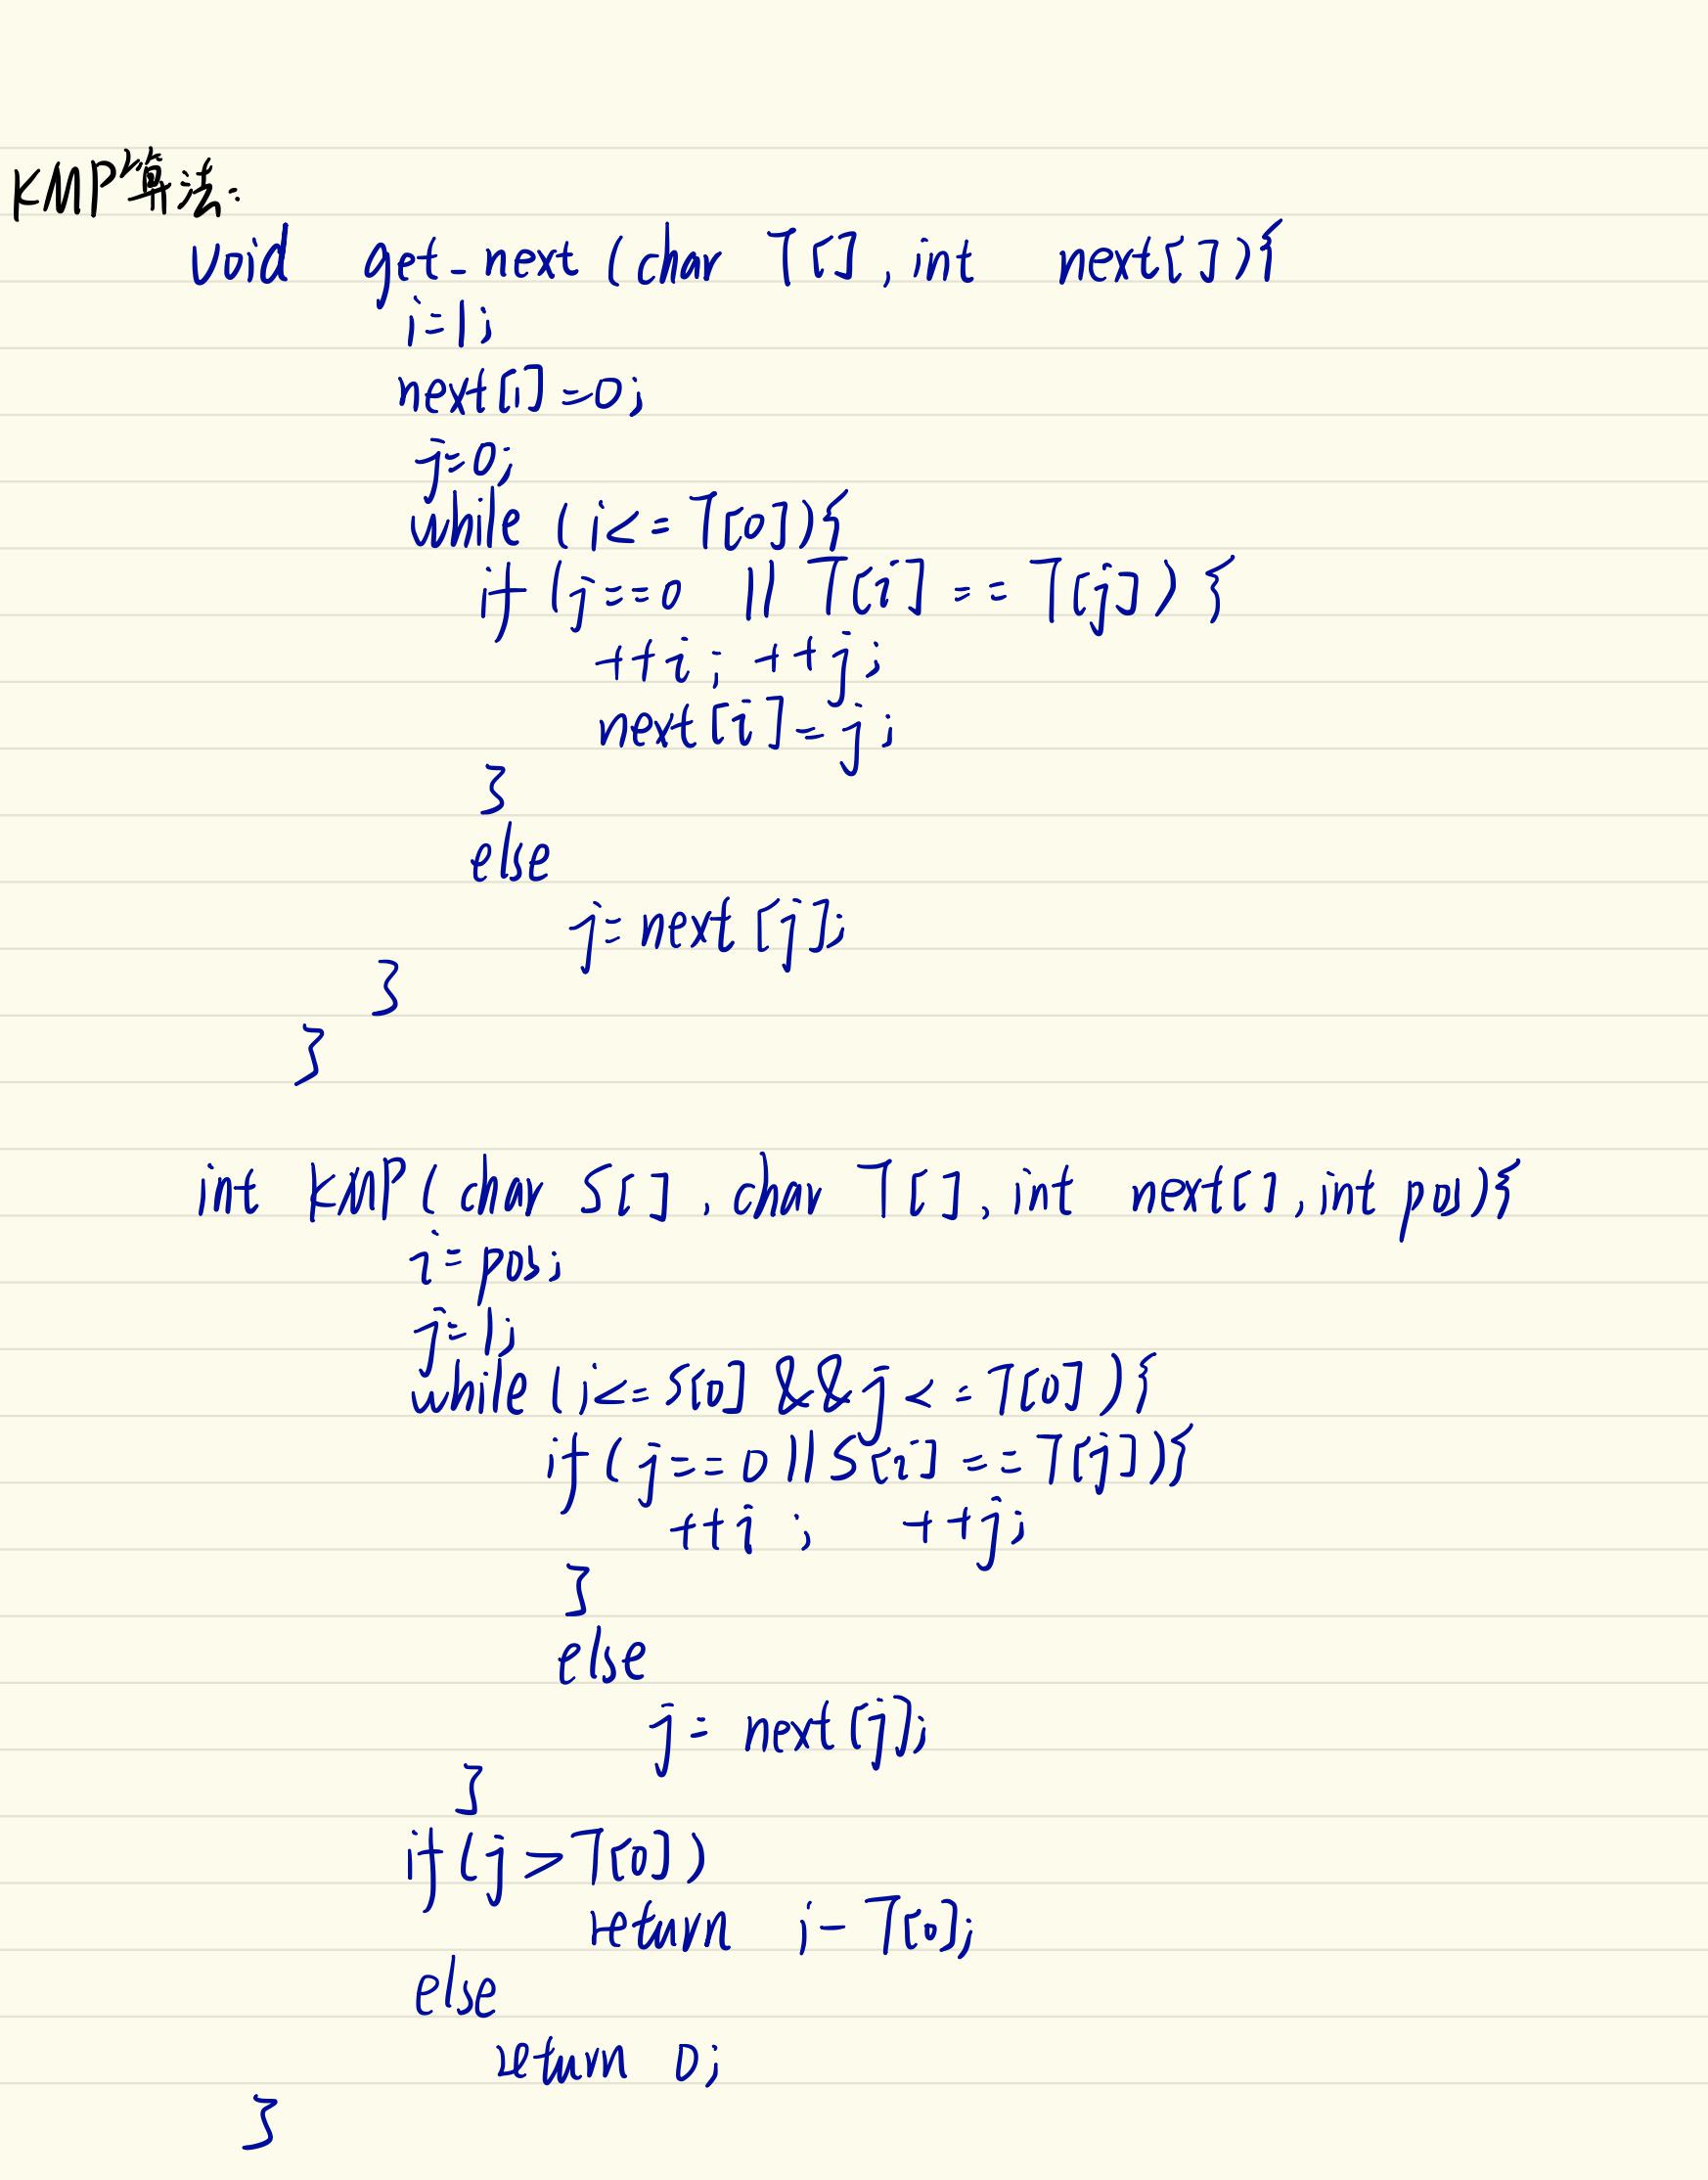 KMP算法:
void get_next (char T[], int next[]){
i=1;
next[i]=0;
j=0;
while (i<=T[0]){
if (j==0 || T[i]==T[j]) {
++i; ++j;
next[i]=j;
}
else
j=next[j];
}
}
int KMP(char S[], char T[], int next[], int pos){
i=pos;
j=1;
while (i<=S[0] && j<=T[0]){
if(j==0||S[i]==T[j]){
++i; ++j;
}
else
j= next[j];
}
if(j>T[0])
return i-T[0];
else
return 0;
}